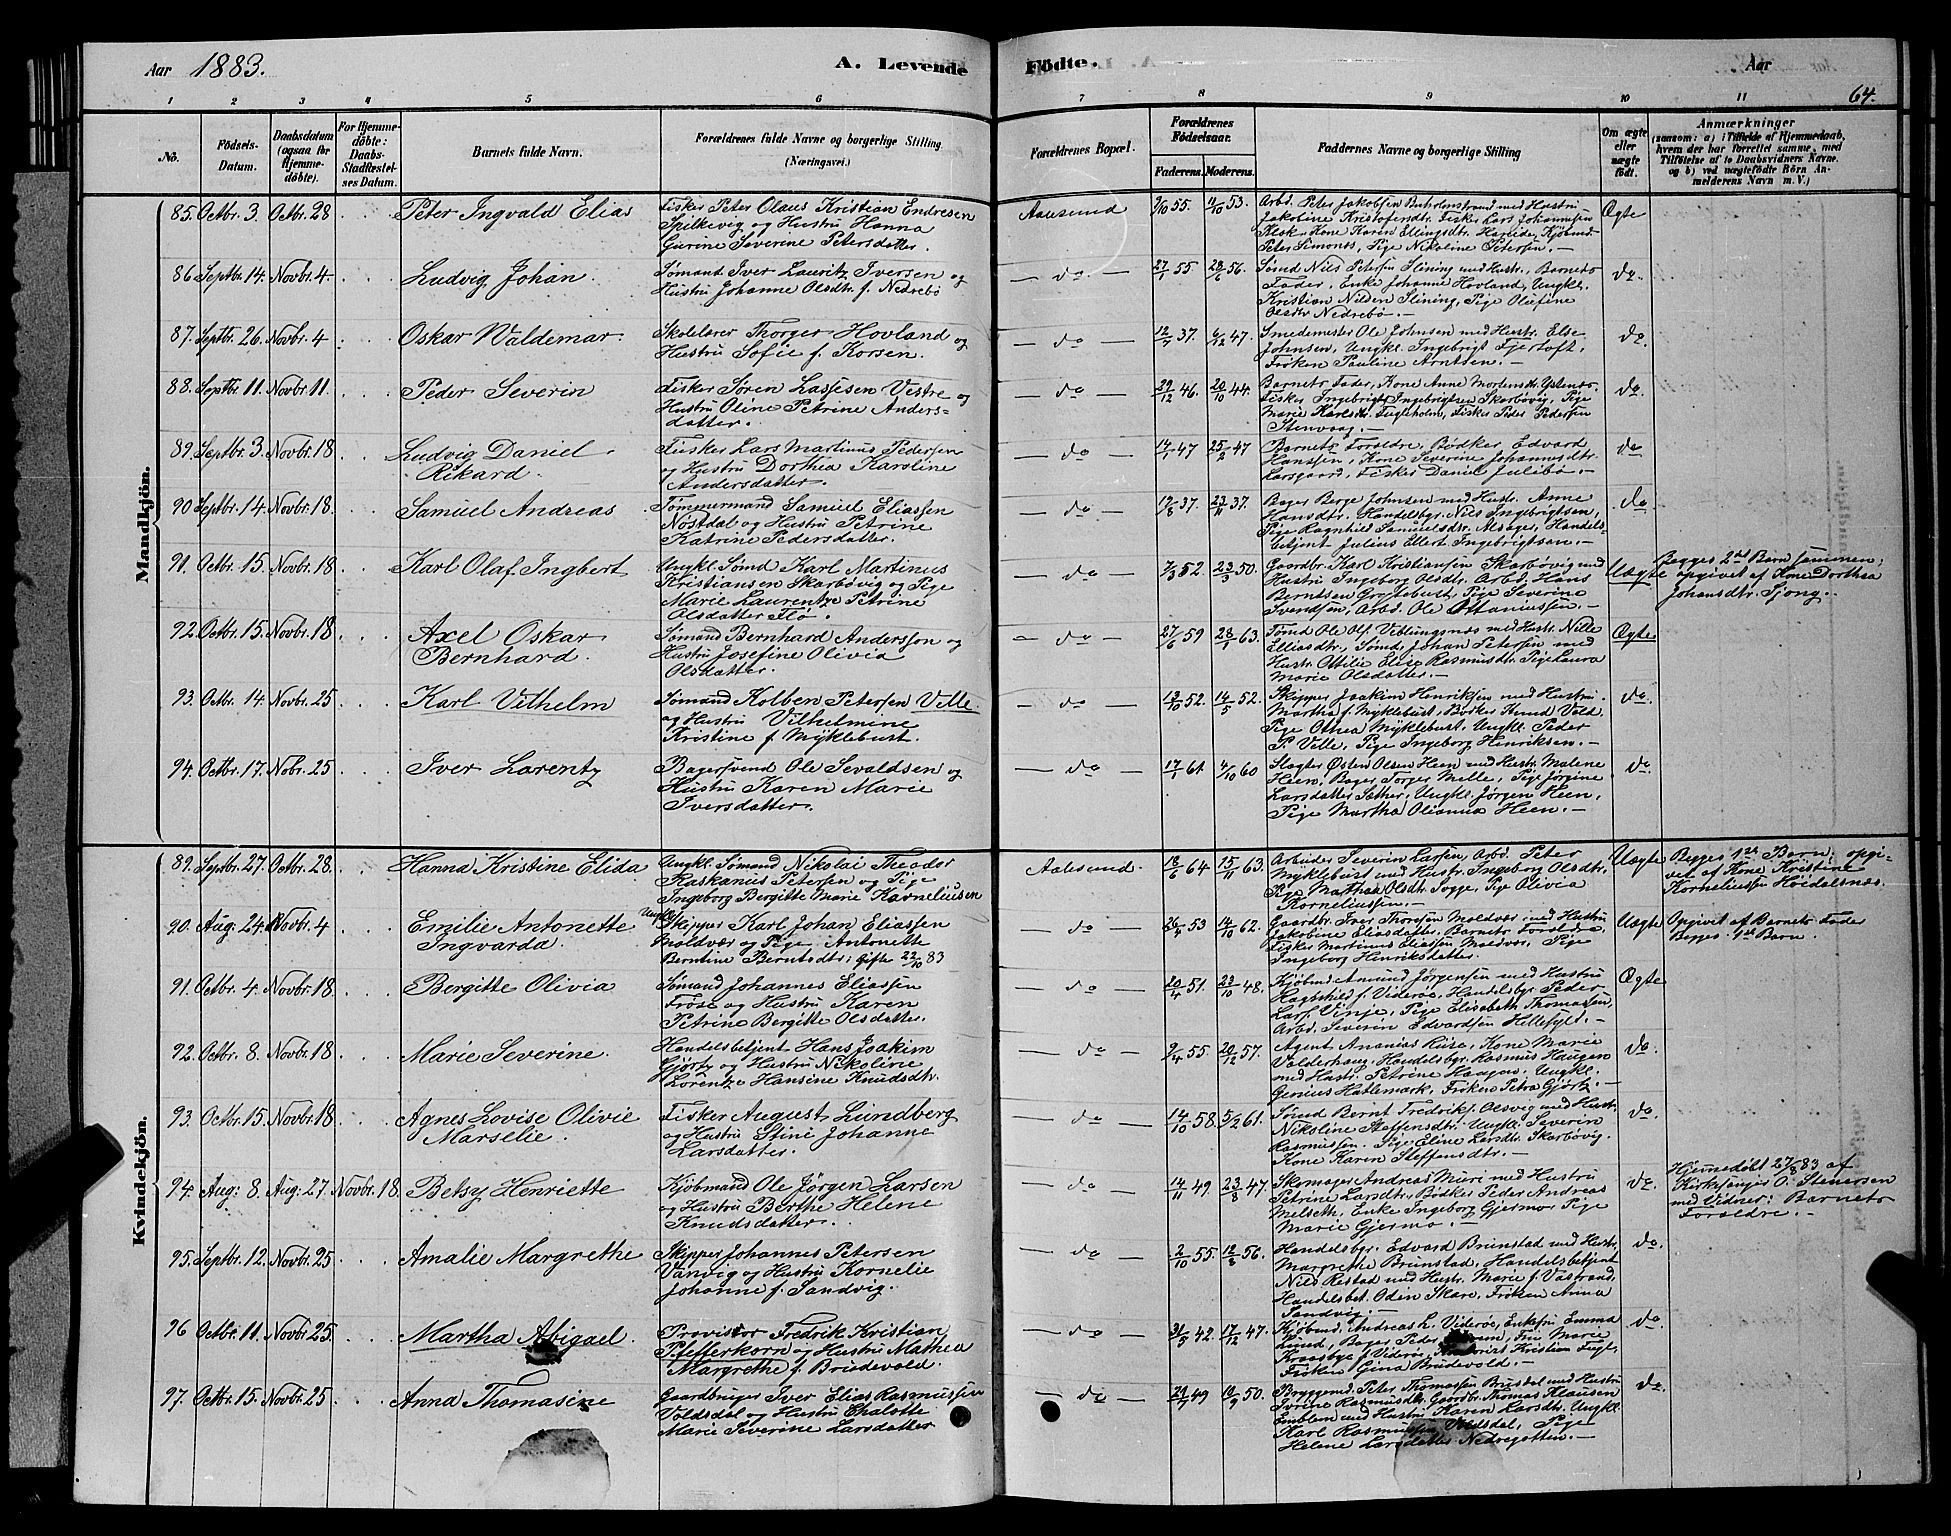 Aar 1883.
A. Levende
Mandkjön.
Kvindekjön.
1 2 3 4 5 6
No.
Födsels-Datum.
Daabsdatum (ogsaa for Hjemme-döbte).
For Hjemme-döbte: Daabs-Stadfæstel-ses Datum.
Barnets fulde Navn.
Forældrenes fulde Navne og borgerlige Stilling (Næringsvei.)
85. Octbr. 3. Octbr. 28 Peter Ingvald Elias
Fisker Peter Olaus Kristian Endresen
Spilkevig og Hustru Hanna
Gurine Severine Petersdatter.
86 Septbr. 14. Novbr. 4. Ludvig Johan.
Sømand Iver Lauritz Iversen og
Hustru Johanne Olsdtr. f. Nedrebö
87. Septbr. 26. Novbr. 4 Oskar Valdemar
Skolelærer Thorger Hovland og
Hustru Sofie f. Korsen.
88. Septbr. 11. Novbr. 11. Peder Severin
Fisker Søren Lassesen Vestre og
Hustru Oline Petrine Anders-
datter.
89. Septbr. 3. Novbr. 18 Ludvig Daniel
Rikard.
Fisker Lars Martinus Pedersen
og Hustru Dorthea Karoline
Andersdatter.
90 Septbr. 14. Novbr. 18. Samuel Andreas
Tømmermand Samuel Eliassen
Nöstdal og Hustru Petrine
Katrine Pedersdatter.
91. Octbr. 15. Novbr. 18 Karl Olaf Ingbert
Ungkl. Sømd. Karl Martinus
Kristiansen Skarbövig og Pige
Marie Laurentze Petrine
Olsdatter Flø.
92. Octbr. 15. Novbr. 18 Axel Oskar
Bernhard.
Sømand Bernhard Anderssen og
Hustru Josefine Olivia
Olsdatter.
93. Octbr. 14. Novbr. 25 Karl Vilhelm
Sømand Kolben Petersen Ville
og Hustru Vilhelmine
Kristine f. Myklebust.
94. Octbr. 17. Nobr. 25 Iver Larentz
Bagersvend Ole Sevaldsen og
Hustru Karen Marie
Iversdatter.
89. Septbr. 27. Octbr. 28. Hanna Kristine Elida
Ungkl. Sømand Nikolai Theodor
Raskanius Petersen og Pige
Ingeborg Bergitte Marie Korneliusen
90. Aug. 24. Novbr. 4 Emilie Antonette
Ingvarda.
Ungkl. Skipper Karl Johan Eliassen
Moldvær og Pige Antonette
Berntine Berntsdtr; Gifte 22/10 83
91. Octbr. 4. Novbr. 18. Bergitte Olivia
Sømand Johannes Eliassen
Frøse og Hustru Karen
Petrine Bergitte Olsdatter.
92. Octbr. 8. Novbr. 18 Marie Severine.
Handelsbetjent Hans Joakim
Gjørtz og Hustru Nikoline
Lorentze Hansine Knudsdtr.
93. Octbr. 15. Novbr. 18 Agnes Lovise Olivie
Marselie.
Fisker August Lundberg
og Hustru Stine Johanne
Larsdatter.
94. Aug: 8. Aug: 27. Novbr. 18. Betsy Henriette
Kjöbmand Ole Jörgen Larsen
og Hustru Berthe Helene
Knudsdatter.
95. Septbr. 12. Novbr. 25 Amalie Margrethe
Skipper Johannes Petersen
Vanvig og Hustru Kornelie
Johanne f. Sandvig.
96 Octbr. 11. Novbr. 25. Martha Abigael.
Provisor Fredrik Kristian
Pfefferkorn og Hustru Mathea
Margrethe f. Brudevold.
97. Octbr. 15. Novbr. 25 Anna Thomasine
Gaardbruger Iver Elias Rasmussen
Voldsdal og Hustru Chalotte
Marie Severine Larsdatter
Födte.
Aar
64.
7 8 9 10 11
Forældrenes Bopæl.
Forældrenes Födselsaar. Faderens. Moderens.
Faddernes Navne og borgerlige Stilling
Om ægte eller uægte født.
Anmærkninger
(saasom: a) i Tilfælde af Hjemmedaab,
hvem der har forrettet samme, med
Tilföielse af to Daabsvidners Navne.
og b) ved uægtefödte Börn An-
melderens Navn m. V.)
Aalesund 9/10 55. 11/10 53. Arbd. Peter Jakobsen Buholmstrand med Hustru
Jakobine Kristofersdtr. Fisker Lars Johannesen
Klok, Kone Karen Ellingsdtr. Hareide, Kjøbmd.
Peter Simonæs, Pige Nikoline Petersen.
Ægte
do 27/1 55. 28/6 56. Sømd Nils Petersen Slining med Hustr., Barnets
Fader, Enke Johanne Hovland, Ungkl.
Kristian Nilsen Slining, Pige Olefine
Olsdtr Nedrebø.
do.
do 12/7 37. 6/12 47. Smedemester Ole Johnsen med Hustr. Else
Johnsen, Ungkl. Ingebrigt Fjertoft,
Frøken Pauline Arntsen.
do.
do 29/12 46. 20/10 44. Barnets Fader, Kone Anne Mortensdtr. Ystenes.
Fisker Ingebrigt Ingebrigtsen Skarbövig, Pige
Marie Karlsdtr. Fugleholm, Fisker Peder Pedersen
Stenvaag.
do
do 14/1 47. 25/2 47 Barnets Forældre, Bødker Edvard
Hanssen, Kone Severine Johannesdtr.
Larsgaard, Fisker Daniel Julebö.
do
do 19/8 37. 23/11 37. Bager Berge Johnsen med Hustr. Anne
Hansdtr. Handelsbgr. Nils Ingebrigtsen,
Pige Ragnhild Samuelsdtr. Alsager, Handels
betjent Julius Ellert Ingebrigtsen.
do
do 7/3 52. 23/3 50. Gaardbr. Karl Kristiansen Skarbøvig med
Hustru Ingeborg Olsdtr. Arbd. Hans
Berntsen Grytebust, Pige Severine
Svendsen, Arbd. Ole Ottaniussen.
Uægte Begges 2det Barn sammen;
opgivet af Kone Dorthea
Johansdtr. Fjong.
do 27/6 59 28/1 63. Tømd Ole Ols. Veblungsnæs med Hustr. Nille
Elliasdtr, Sømd. Johan Petersen med
Hustr. Ottilie Elise Rasmusdtr. Pige Laura
Marie Olsdatter.
Ægte
do 13/10 52. 14/5 52. Skipper Joakim Henriksen med Hustru
Martha f. Myklebust, Bødker Knud Vold,
Pige Othea Myklebust, Ungkl. Peder
P. Ville, Pige Ingeborg Henriksen.
do.
do 17/1 61 4/10 60 Slagter Østen Olsen Heen med Hustr. Malene
Heen, Bager Torger Melle, Pige Jörgine
Larsdatter Sæther, Ungkl. Jörgen Heen,
Pige Martha Oleanna Heen.
do.
Aalesund. 18/6 64 15/11 63. Arbeider Severin Larsen, Arbd. Peter
Myklebust med Hustr. Ingeborg Olsdtr.
Pige Marthe Olsdtr. Sogge, Pige Olivia
Korneliussen.
Uægte Begges 1ste Barn; opgi-
vet af Kone Kristine
Korneliussen Höidalsnæs.
do 26/4 53 14/10 62. Gaardbr. Iver Thoresen Moldvær med Hustru
Jakobine Eliasdatter, Barnets Forældre,
Fisker Martinus Eliassen Moldvær, Pige
Ingeborg Henriksdatter.
Uægte Opgivet af Barnets Fader
Begges 1ste Barn.
do 20/4 51. 23/10 48. Kjöbmd Amund Jørgensen med Hustru
Hagbthild f. Viderøe, Handelsbgr. Peder
Lars. Vinje, Pige Elisabeth Thomassen,
Arbd. Severin Edvardsen Hellesylt.
Ægte
do 9/4 55. 20/12 57. Agent Ananias Ruse, Kone Marie
Valderhaug, Handelsbgr. Rasmus Haugen
med Hustr. Petrine Haagen. Ungkl.
Genius Hatlemark, Frøken Petra Gjörtz.
do.
do 14/10 58. 5/2 61. Sømd Bernt Fredriks. Olsvig med Hustr.
Nikoline Steffensdtr. Ungkl. Severin
Rasmussen, Pige Eline Larsdtr. Skarbövig.
Kone Karen Steffensdtr.
do.
do 14/11 49. 23/8 47 Skomager Andreas Muri med Hustru
Petrine Larsdtr, Bødker Peder Andreas
Melseth, Enke Ingeborg Gjermo, Pige
Marie Gjermo.
do. Hjemmedöbt 27/8 83 af
Kirkesanger O. Stenersen
med Vidner: Barnets
Forældre.
do 2/10 55. 12/8 56. Handelsbgr. Edvard Brunstad med Hustr.
Margrethe Brunstad, Handelsbetjent
Nils Restad med Hustr. Marie f. Vastrand,
Handelsbet. Oden Skare, Frøken Anna
Sandvig.
do.
do 31/3 42. 17/12 47. Kjøbmd. Andreas L. Viderøe, Enkefru Emma
Lund, Bager Peder Fru Marie
Kraasbye f. Viderø, Kristian Fugl,
Frøken Gina Brudevold.
do.
do 21/7 49 10/9 50. Bryggemd. Peter Thomassen Brusdal med Hustru
Iverine Rasmusdtr. Gaardbr. Thomas Klausen
Emblem med Hustru Karen Larsdtr. Ungkl.
Karl Rasmussen Voldsdal, Pige
Helene Larsdatter Nedregotten.
do.